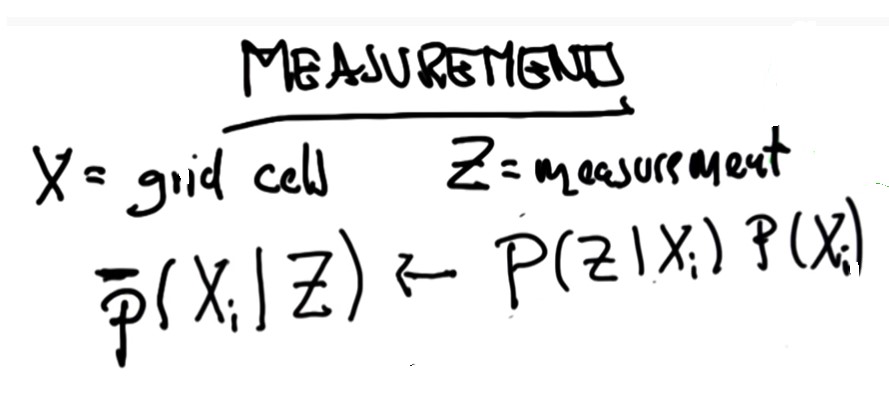 MEASUREMENT
X = grid cell Z = measurement
p̄(Xᵢ|Z) ← P(Z|Xᵢ) P(Xᵢ)